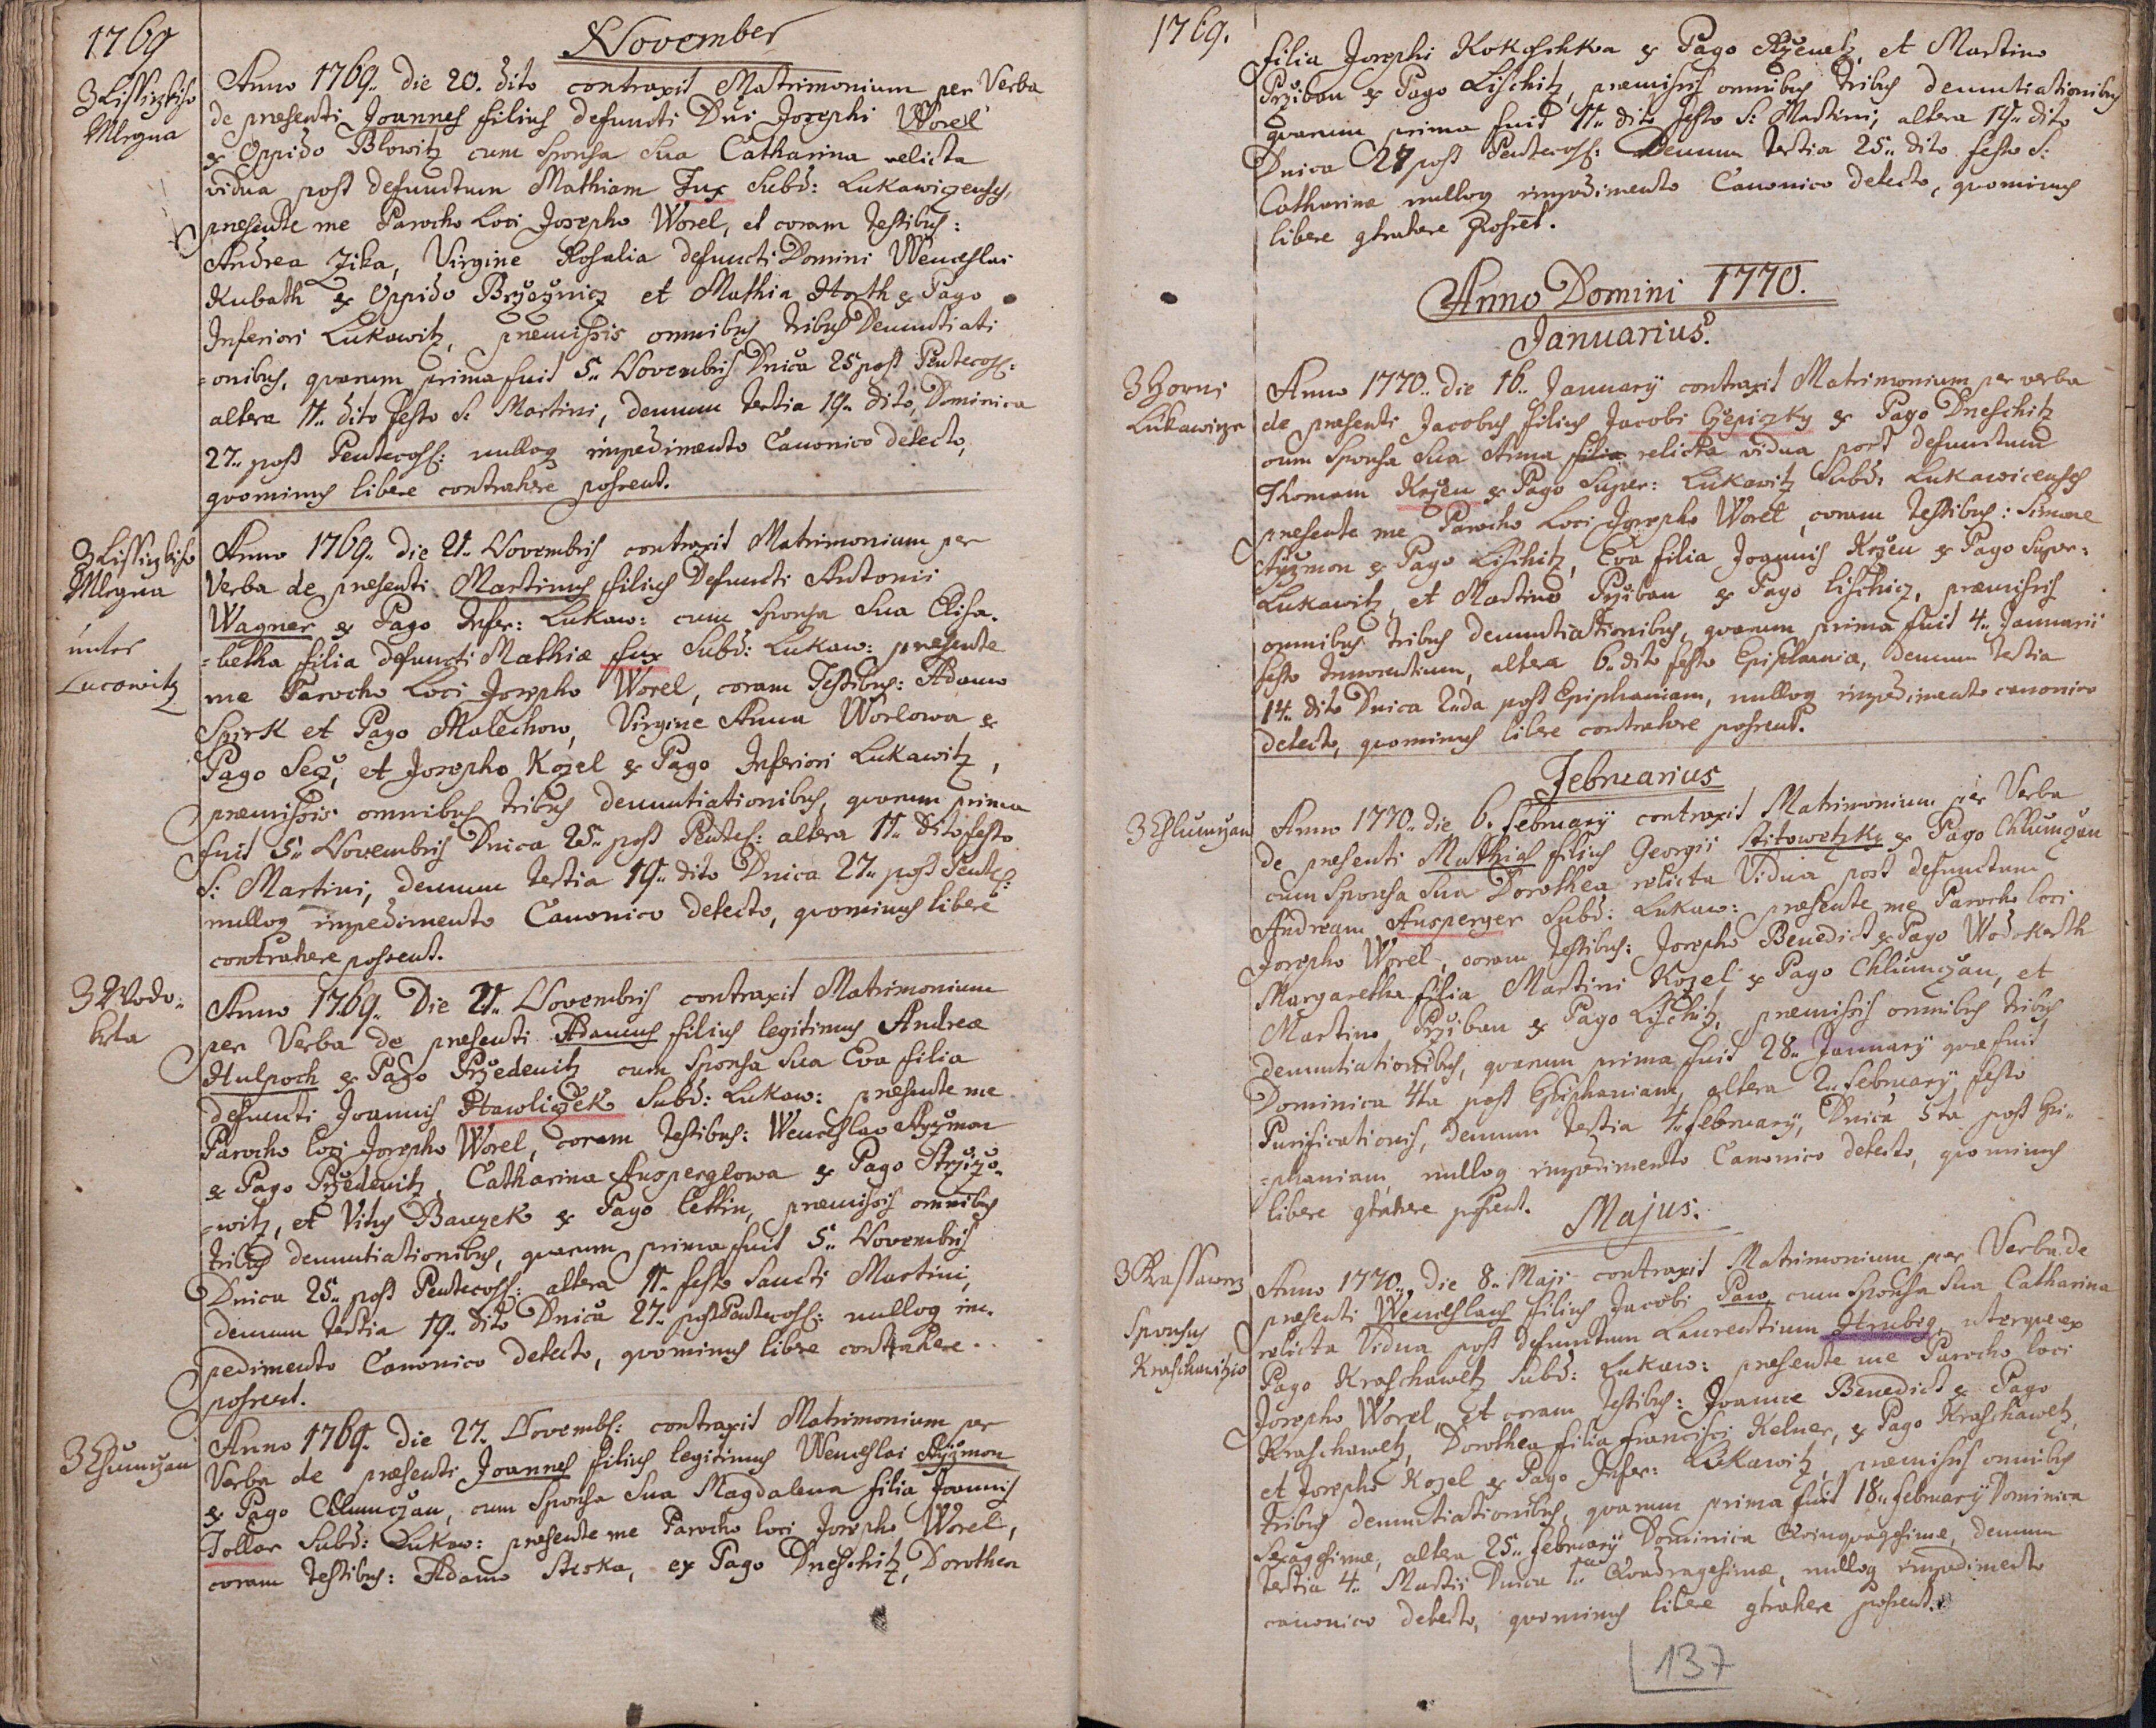 1769
November
Z Lissiczkiho
Mlegna
Anno 1769. die 20. dito contraxit Matrimonium per Verba
de præsenti Joannes filius defuncti Dni Josephi Worel
ex Oppido Blowitz cum Sponsa Sua Catharina relicta
vidua post defunctum Mathiam Fux Subd: Lukawiczensis,
præsente me Parocho Loci Josepho Worel, et coram testibus:
Andrea Zika, Virgine Rosalia defuncti Domini Wenceslai
Kubath ex Oppido et Mathia ex Pago
Inferiori Lukawitz, præmissis omnibus tribus Denuntiati
=onibus, quarum prima fuit 5.. Novembris Dnica 25 post Pentecost:
altera 11.. dito festo S: Martini, demum tertia 19.. dito, Dominica
27.. post Pentecost: nulloq impedimento Canonico detecto,
quominus libere contrahere possent.
Z Lissiczkiho
Mlegna
unter
Lucowitz
Anno 1769.. die 21.. Novembris contraxit Matrimonium per
Verba de præsenti Martinus filius Defuncti Antonii
Wagner ex Pago Infer: Lukaw: cum Sponsa Sua Elisa.
=betha filia defuncti Mathiæ fux Subd: Lukaw: præsente
me Parocho Loci Josepho Worel, coram Testibus: Adamo
Spirk et Pago Malechow, Virgine Anna Worlowa ex
Pago Secz, et Josepho Kozel ex Pago Inferiori Lukawitz,
præmissis omnibus tribus denuntiationibus, quarum prima
fuit 5.. Novembris Dnica 25.. post Pentec: altera 11.. dito festo
S: Martini, demum tertia 19.. dito Dnica 27.. post Pentec:
nulloq impedimento Canonico detecto, quominus libere
contrahere possent.
Z Wodo..
krta
Anno 1769.. Die 21.. Novembris contraxit Matrimonium
per Verba de præsenti Adamus filius legitimus Andreæ
Hulpoch ex Pago Przedenitz cum Sponsa Sua Eva filia
defuncti Joannis Hawliczek Subd: Lukaw: præsente me
Parocho loci Josepho Worel, coram testibus: Wenceslao
ex Pago Przedenitz, Catharina Ausperglowa ex Pago Strziżo
=witz, et Vitus Bauczek ex Pago Lettin, præmissis omnibus
tribus denuntiationibus, quarum prima fuit 5.. Novembris
Dnica 25.. post Pentecost: altera 11.. festo Sancti Martini,
demum tertia 19.. dito Dnica 27.. post Pentecost: nulloq im..
pedimento Canonico detecto, quominus libere contrahere..
possent.
Z Chlumczan
Anno 1769. die 27. Novemb: contraxit Matrimonium per
Verba de præsenti Joannes filius legitimus Wenceslai
ex Pago Chlumczan, cum Sponsa Sua Magdalena filia Joannis
Tollar Subd: Lukaw: præsente me Parocho loci Josepho Worel,
coram testibus: Adamo Steska, ex Pago Dneschitz, Dorothea
1769.
filia Josephi Kokoschka ex Pago et Martino
Prziban ex Pago Lischitz, præmissis omnibus tribus denuntiationibus
quarum prima fuit 11.. dito festo S: Martini, altera 19.. dito
Dnica 27 post Pentecost: Demum tertia 25.. dito festo S:
Catharinæ nulloq impedimento Canonico detecto, quominus
libere gtrahere posset.
Anno Domini 1770.
Januarius.
Z Horni
Lukawicze
Anno 1770.. die 16.. January contraxit Matrimonium per verba
de præsenti Jacobus filius Jacobi Czepiczky ex Pago Dneschitz
cum Sponsa Sua Anna filia relicta vidua post defunctum
Thomam Krzen ex Pago Super: Lukawitz Subd: Lukawicensis
præsente me Parocho Loci Josepho Worel, coram testibus: Simone
ex Pago Lischitz, Eva filia Joannis Krzen ex Pago Super:
Lukawitz, et Martino Prziban ex Pago lischicz, præmissis
omnibus tribus denuntiationibus, quarum prima fuit 4.. Januarii
festo Innocentium, altera 6.. dito festo Epiphaniæ, demum tertia
14.. dito Dnica 2.da post Epiphaniam, nulloq impedimento canonico
detecto, quominus libere contrahere possent.
Februarius
Z Chlumczan
Anno 1770.. die 6. february contraxit Matrimonium per Verba
de præsenti Matthias filius Georgii Stitowetzky ex Pago Chlumczan
cum Sponsa Sua Dorothea relicta Vidua post defunctum
Andream Ausperger Subd: Lukaw: præsente me Parocho loci
Josepho Worel, coram testibus: Josepho Benedict ex Pago Wodokerth
Margaretha filia Martini Kozel ex Pago Chlumczan, et
Martino Prziban ex Pago Lischitz, præmissis omnibus tribus
denuntiationibus, quarum prima fuit 28.. January quæ fuit
Dominica 4ta post Epiphaniam, altera 2.. february festo
Purificationis, demum tertia 4. february, Dnica 5ta post Epi..
=phaniam, nulloq impedimento Canonico detecto, quominus
libere gtrahere possent.
Majus.
Z Krassawcz
Sponsus
Kraschawitzio
Anno 1770.. die 8.. Maji contraxit Matrimonium per Verba de
præsenti Wenceslaus filius Jacobi Paw cum Sponsa Sua Catharina
relicta Vidua post defunctum Laurentium Hrubeg, uterque ex
Pago Kraschawetz Subd: Lukaw: præsente me Parocho loci
Josepho Worel, et coram testibus: Joanne Benedict ex Pago
Kraschawetz, Dorothea filia francisci Kelner, ex Pago Kraschawetz,
et Josepho Kozel ex Pago Infer: Lukawitz, præmissis omnibus
tribus denuntiationibus, quarum prima fuit 18.. february Dominica
Sexagesimæ, altera 25.. february Dominica Quinquagesimæ, demum
tertia 4.. Martii Dnica 1.ma Quadragesimæ, nulloq impedimento
canonico detecto, quominus libere gtrahere possent.
137